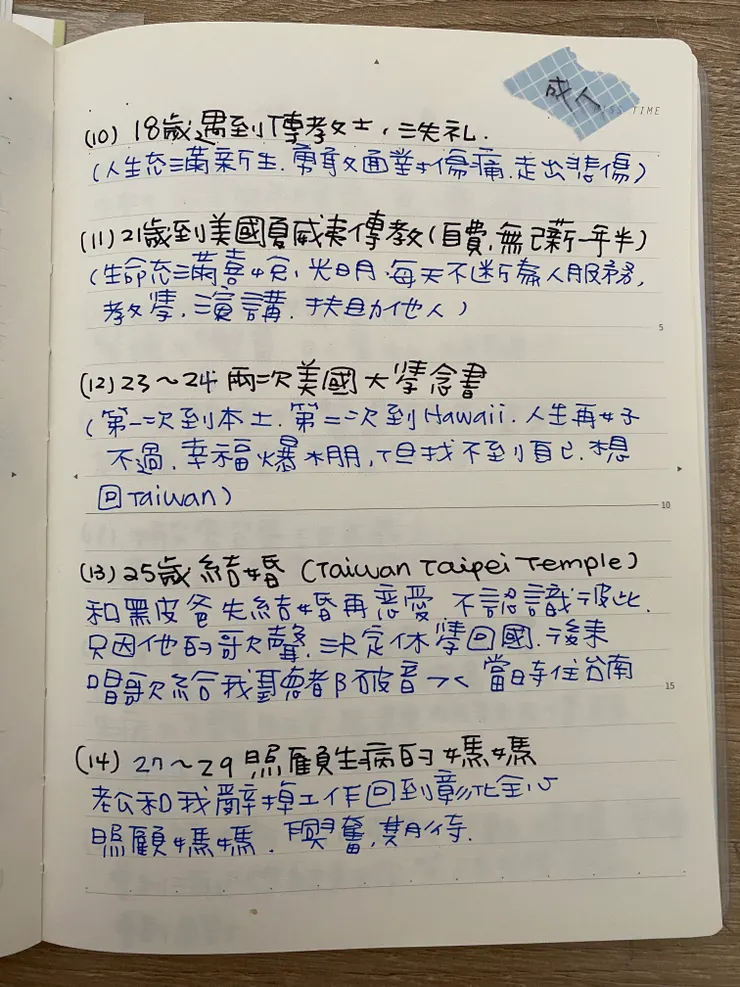 成人
SS TIME
(10) 18歲遇到傳教士,洗礼.
(人生充滿新生.勇敢面對傷痛.走出悲傷)
(11) 21歲到美國夏威夷傳教(自費,無已薪一年半)
(生命充滿喜悅,光明,每天不斷為人服務,
教學,演講.扶助他人)
5
(12) 23~24 兩次美國大學念書
(第一次到本土.第二次到Hawaii.人生再好
不過.幸福爆棚,但找不到自己.想
回Taiwan)
10
(13) 25歲結婚 (Taiwan Taipei Temple)
和黑皮爸先結婚再戀愛.不認識彼此.
只因他的歌聲.決定休學回國.後來
唱歌給我聽都破音ㄟ 當時住台南
15
(14) 27~29 照顧生病的媽媽
老公和我辭掉工作回到彰化全心
照顧媽媽.興奮,期待.